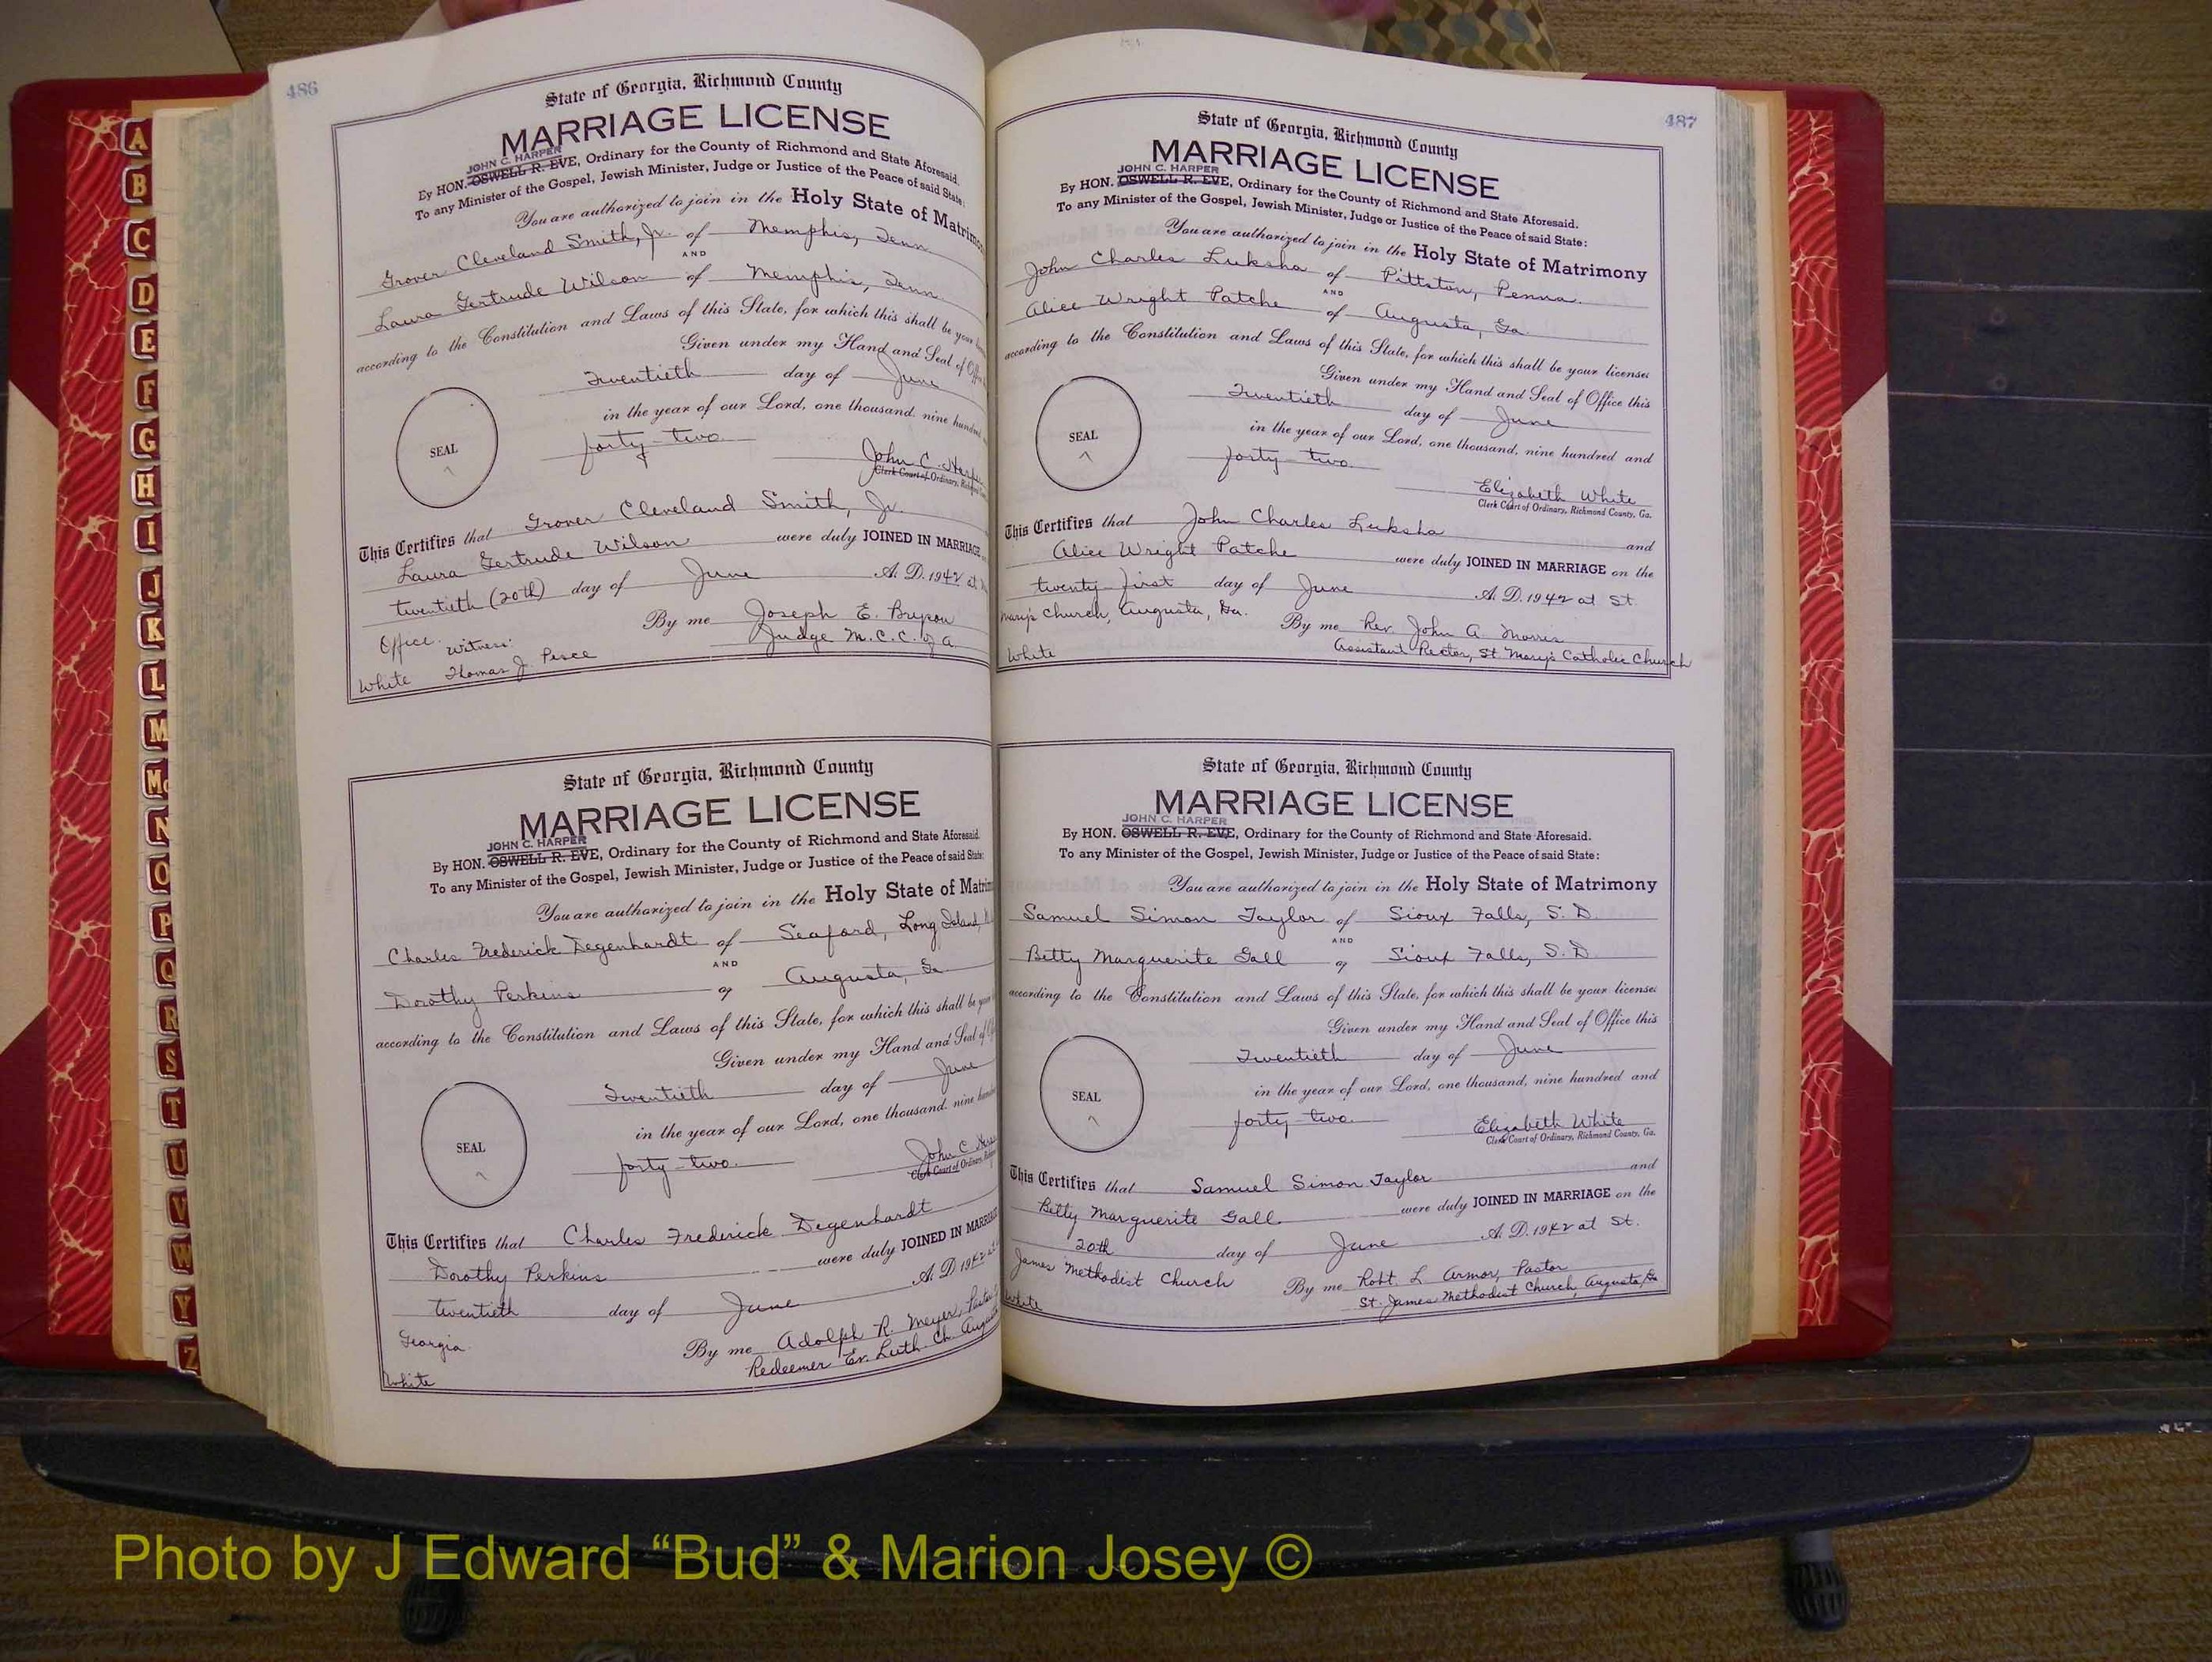 486
State of Georgia, Richmond County
MARRIAGE LICENSE
JOHN C. HARPER
By HON. OSWELL R. EVE, Ordinary for the County of Richmond and State Aforesaid.
To any Minister of the Gospel, Jewish Minister, Judge or Justice of the Peace of said State:
You are authorized to join in the Holy State of Matrimony
Grover Cleveland Smith, Jr. of Memphis, Tenn
AND
Laura Gertrude Wilson of Memphis, Tenn.
according to the Constitution and Laws of this State, for which this shall be your
Given under my Hand and Seal of
Twentieth day of June
in the year of our Lord, one thousand, nine hundred
forty-two
SEAL
John C.
Clerk Court of Ordinary,
This Certifies that Grover Cleveland Smith, Jr.
Laura Gertrude Wilson were duly JOINED IN MARRIAGE
twentieth (20th) day of June A. D. 1942 at
Office. Witness: By me Joseph E. Bryson
Judge M. C. C. of A
White Thomas J. Pesce
State of Georgia, Richmond County
MARRIAGE LICENSE
JOHN C. HARPER
By HON. OSWELL R. EVE, Ordinary for the County of Richmond and State Aforesaid.
To any Minister of the Gospel, Jewish Minister, Judge or Justice of the Peace of said State:
You are authorized to join in the Holy State of
Charles Frederick Degenhardt of Seaford, Long Island,
AND
Dorothy Perkins of Augusta, Ga
according to the Constitution and Laws of this State, for which this shall be your
Given under my Hand and Seal of
Twentieth day of June
in the year of our Lord, one thousand, nine
forty-two.
SEAL
John C
Clerk Court of Ordinary,
This Certifies that Charles Frederick Degenhardt
Dorothy Perkins were duly JOINED IN MARRIAGE
twentieth day of June A. D. 1942 at
Georgia By me Adolph R. Meyer, Pastor
Redeemer Ev. Luth. Ch.
White
487
State of Georgia, Richmond County
MARRIAGE LICENSE
JOHN C. HARPER
By HON. OSWELL R. EVE, Ordinary for the County of Richmond and State Aforesaid.
To any Minister of the Gospel, Jewish Minister, Judge or Justice of the Peace of said State:
You are authorized to join in the Holy State of Matrimony
John Charles Luksha of Pittston, Penna.
AND
Alice Wright Patche of Augusta, Ga.
according to the Constitution and Laws of this State, for which this shall be your license:
Given under my Hand and Seal of Office this
Twentieth day of June
in the year of our Lord, one thousand, nine hundred and
forty-two.
SEAL
Elizabeth White
Clerk Court of Ordinary, Richmond County, Ga.
This Certifies that John Charles Luksha and
Alice Wright Patche were duly JOINED IN MARRIAGE on the
twenty-first day of June A. D. 1942 at St.
Mary's Church, Augusta, Ga. By me Rev. John A. Morris
White Assistant Rector, St. Mary's Catholic Church
State of Georgia, Richmond County
MARRIAGE LICENSE
JOHN C. HARPER
By HON. OSWELL R. EVE, Ordinary for the County of Richmond and State Aforesaid.
To any Minister of the Gospel, Jewish Minister, Judge or Justice of the Peace of said State:
You are authorized to join in the Holy State of Matrimony
Samuel Simon Taylor of Sioux Falls, S. D.
AND
Betty Marguerite Gall of Sioux Falls, S. D.
according to the Constitution and Laws of this State, for which this shall be your license:
Given under my Hand and Seal of Office this
Twentieth day of June
in the year of our Lord, one thousand, nine hundred and
forty-two.
SEAL
Elizabeth White
Clerk Court of Ordinary, Richmond County, Ga.
This Certifies that Samuel Simon Taylor and
Betty Marguerite Gall were duly JOINED IN MARRIAGE on the
20th day of June A. D. 1942 at St.
James Methodist Church By me Robt. L Armor, Pastor
White St. James Methodist Church, Augusta, Ga
A
B
C
D
E
F
G
H
I
J
K
L
M
Mc
N
O
P
Q
R
S
T
U
V
W
Y
Z
Photo by J Edward “Bud” & Marion Josey ©